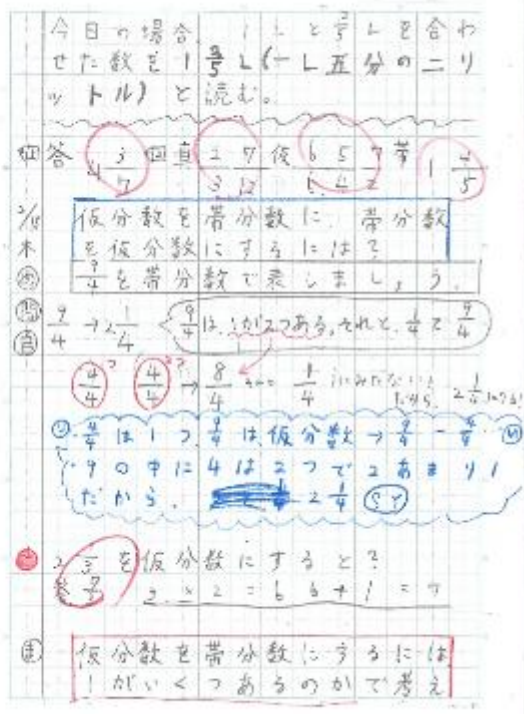 今日の場合、1Lと2/5Lを合わ
せた数を1 2/5L(一L五分の二リ
ットル)と読む。
答 4 3/7 真 2/3 7/12 仮 6/6 5/4 7/2 帯 1 4/5
仮分数を帯分数に、帯分数
を仮分数にするには?
木
9/4を帯分数で表しましょう。
9/4→2 1/4
9/4は、1が2つある、それと、1/4で9/4
4/4 4/4 → 8/4 1/4 1にみたない
だから、2 1/4になる
4/4は1つ 9/4は仮分数→9/4-4/4
9の中に4は2つで2あまり1
だから、2 1/4
2 1/3を仮分数にすると?
答 7/3 3×2=6 6+1=7
仮分数を帯分数にするには
1がいくつあるのかで考え